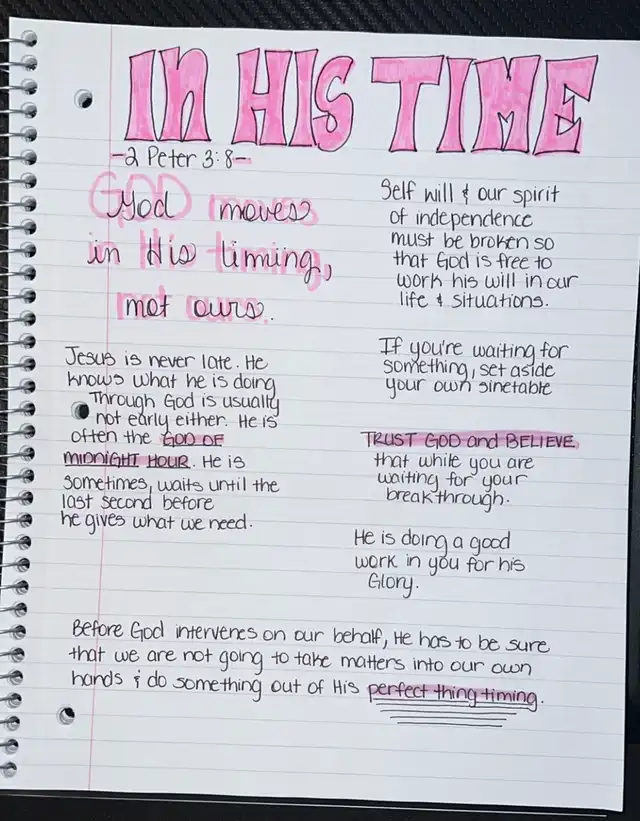 IN HIS TIME
-2 Peter 3:8-
God moves
in His timing,
not ours.
Jesus is never late. He
knows what he is doing
Through God is usually
not early either. He is
often the GOD OF
MIDNIGHT HOUR. He is
sometimes, waits until the
last second before
he gives what we need.
Self will & our spirit
of independence
must be broken so
that God is free to
work his will in our
life & situations.
If you're waiting for
something, set aside
your own sinetable
TRUST GOD and BELIEVE
that while you are
waiting for your
breakthrough.
He is doing a good
work in you for his
Glory.
Before God intervenes on our behalf, He has to be sure
that we are not going to take matters into our own
hands & do something out of His perfect thing timing.